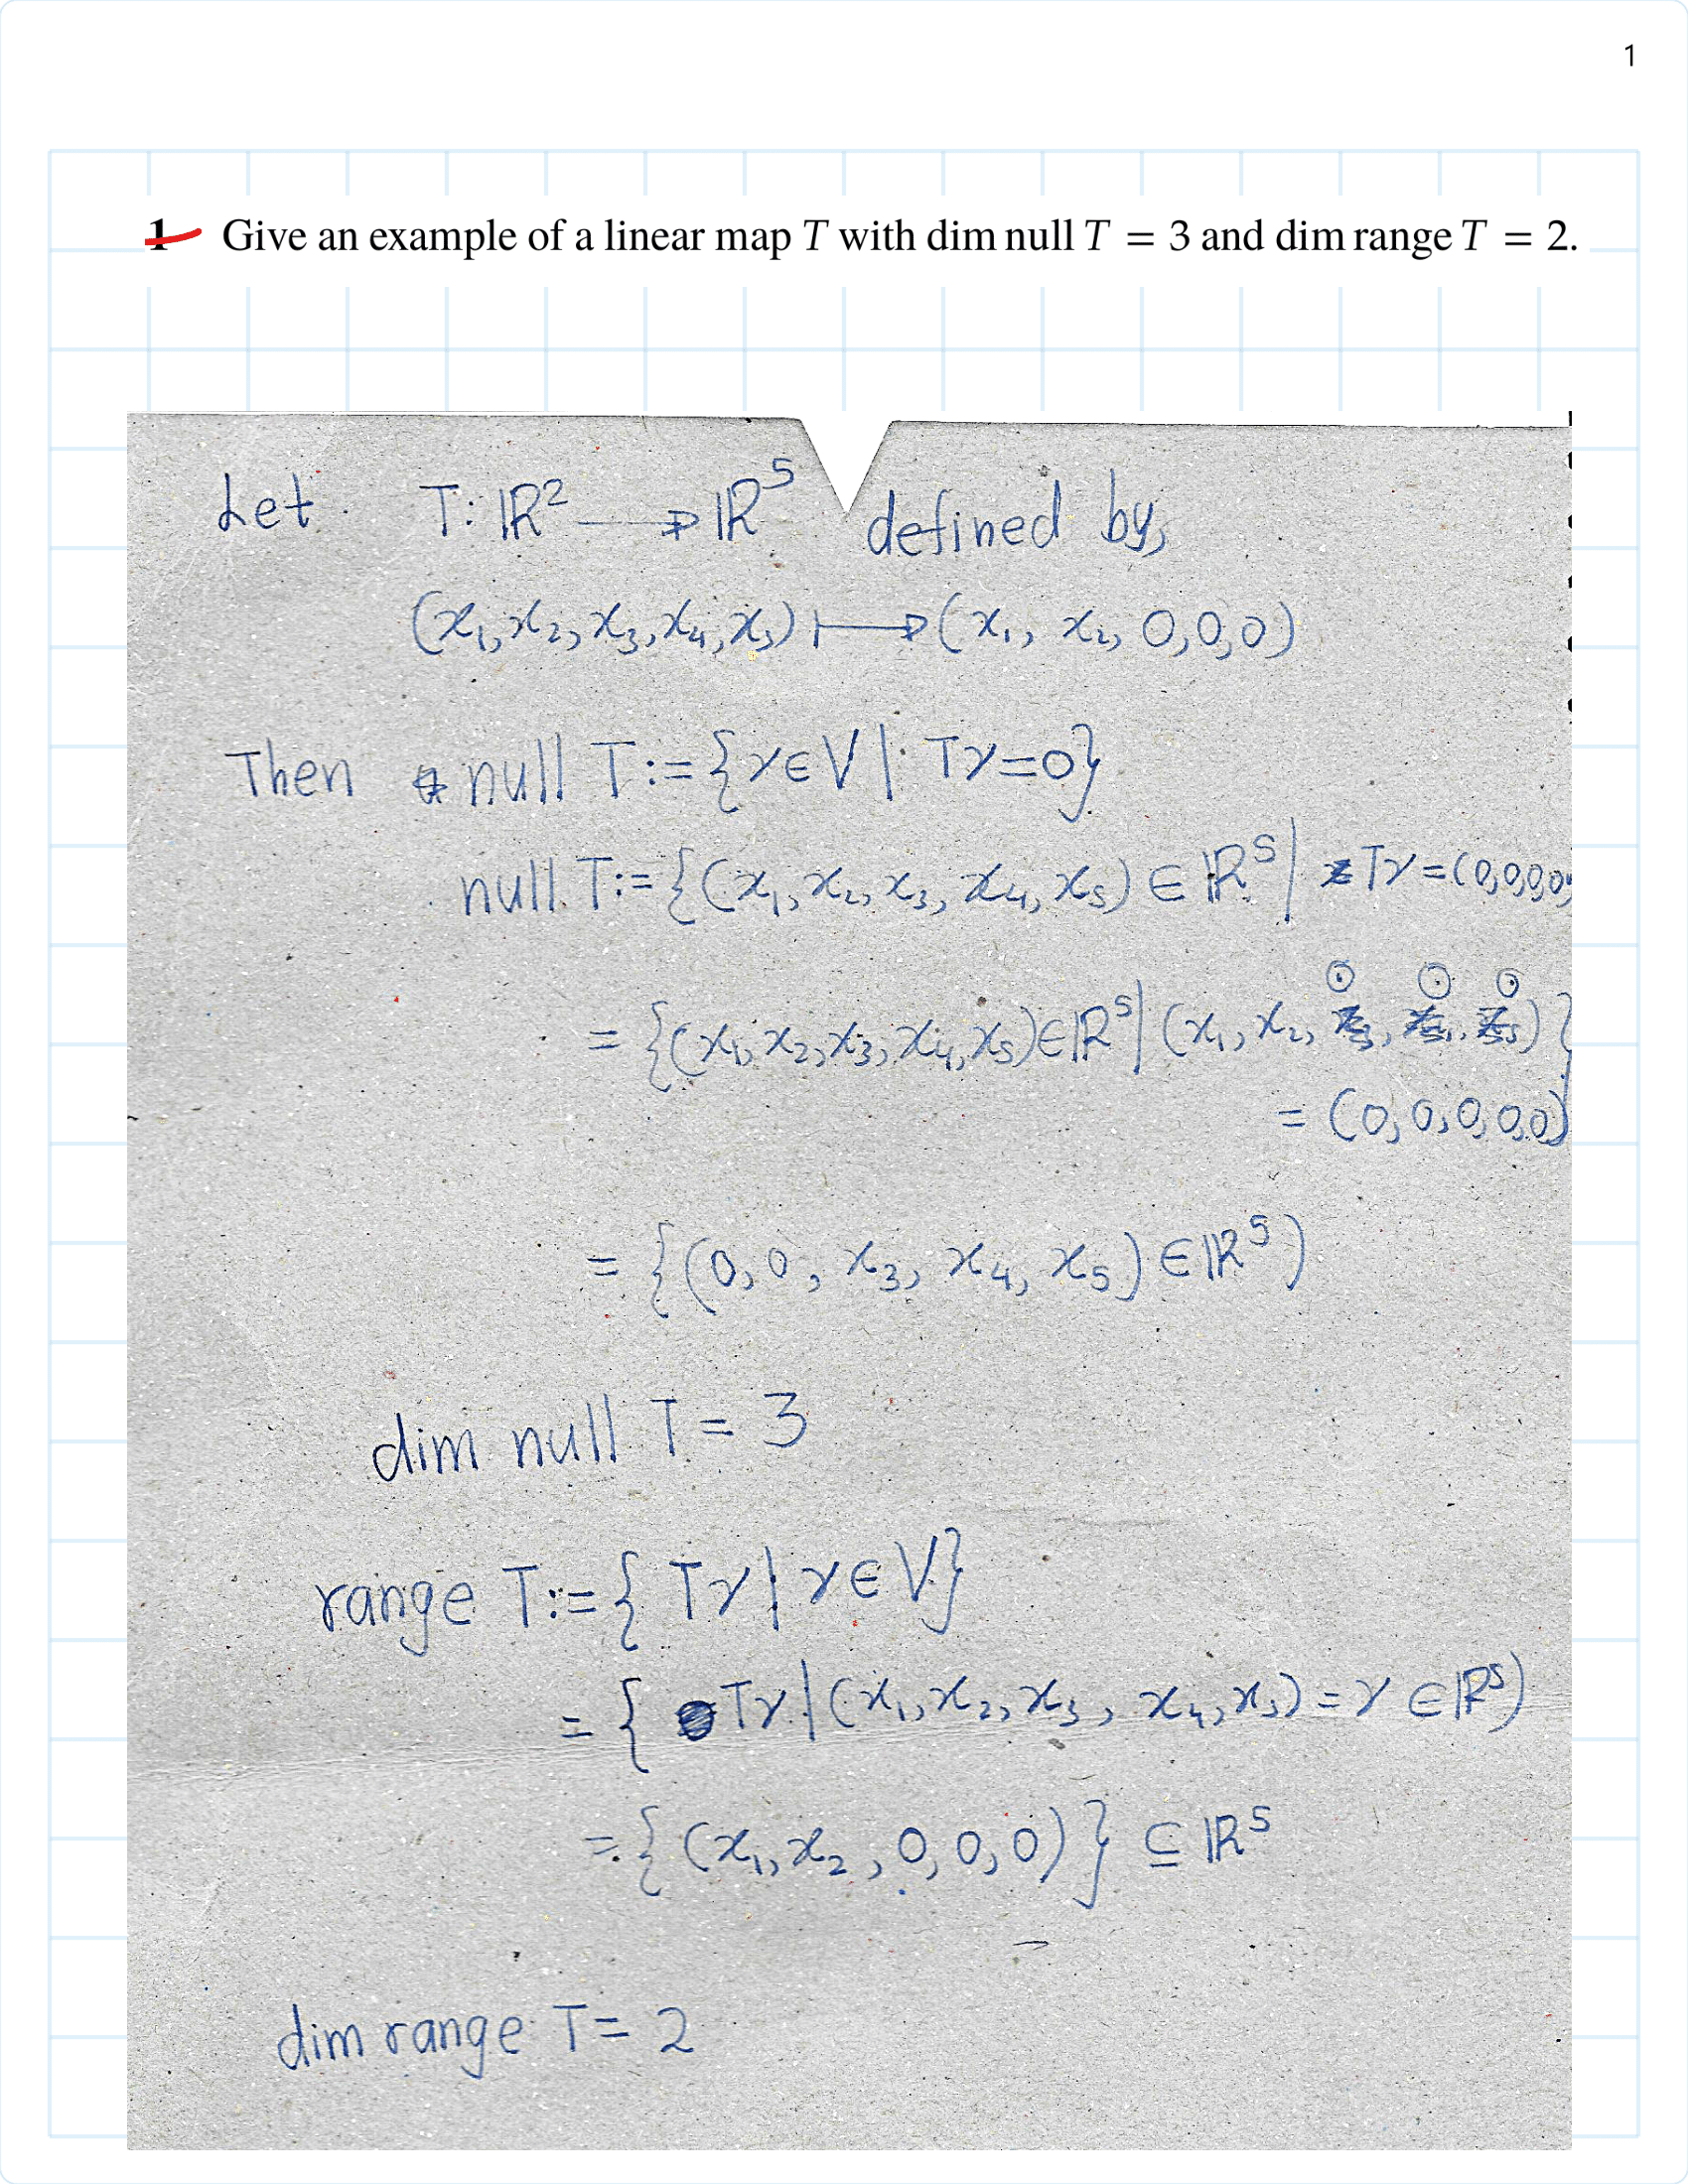 1
1 Give an example of a linear map T with dim null T = 3 and dim range T = 2.
Let T: ℝ² → ℝ⁵ defined by,
(x₁, x₂, x₃, x₄, x₅) ↦ (x₁, x₂, 0, 0, 0)
Then null T := {v ∈ V | Tv = 0}
null T := {(x₁, x₂, x₃, x₄, x₅) ∈ ℝ⁵ | Tv = (0,0,0,0,
= {(x₁, x₂, x₃, x₄, x₅) ∈ ℝ⁵ | (x₁, x₂, 0, 0, 0)}
= (0, 0, 0, 0, 0)
= {(0, 0, x₃, x₄, x₅) ∈ ℝ⁵)
dim null T = 3
range T := {Tv | v ∈ V}
= {Tv | (x₁, x₂, x₃, x₄, x₅) = v ∈ ℝ⁵)
= {(x₁, x₂, 0, 0, 0)} ⊆ ℝ⁵
dim range T = 2